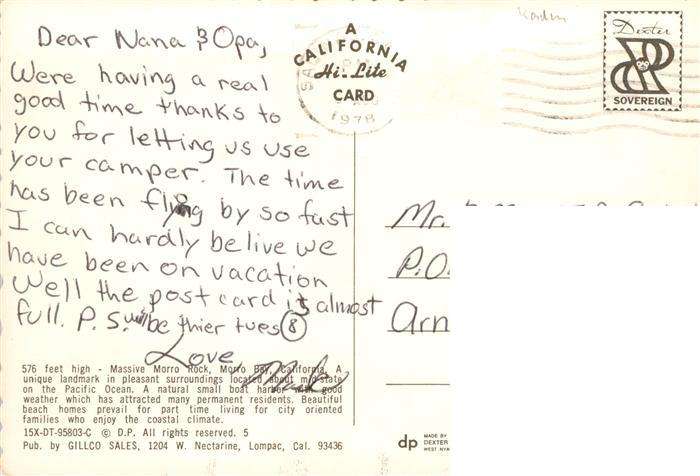 Dear Nana & Opa,
Were having a real
good time thanks to
you for letting us use
your camper. The time
has been flying by so fast
I can hardly belive we
have been on vacation
Well the post card is almost
full. P.S. will be thier tues 8
Love,
A
CALIFORNIA
Hi-Lite
CARD
1978
Dexter
SOVEREIGN
Mr.
P.O.
Arn
576 feet high - Massive Morro Rock, Morro Bay, California. A
unique landmark in pleasant surroundings located about mid-state
on the Pacific Ocean. A natural small boat harbor with good
weather which has attracted many permanent residents. Beautiful
beach homes prevail for part time living for city oriented
families who enjoy the coastal climate.
15X-DT-95803-C © D.P. All rights reserved. 5
Pub. by GILLCO SALES, 1204 W. Nectarine, Lompac, Cal. 93436
dp
MADE BY
DEXTER
WEST NYA